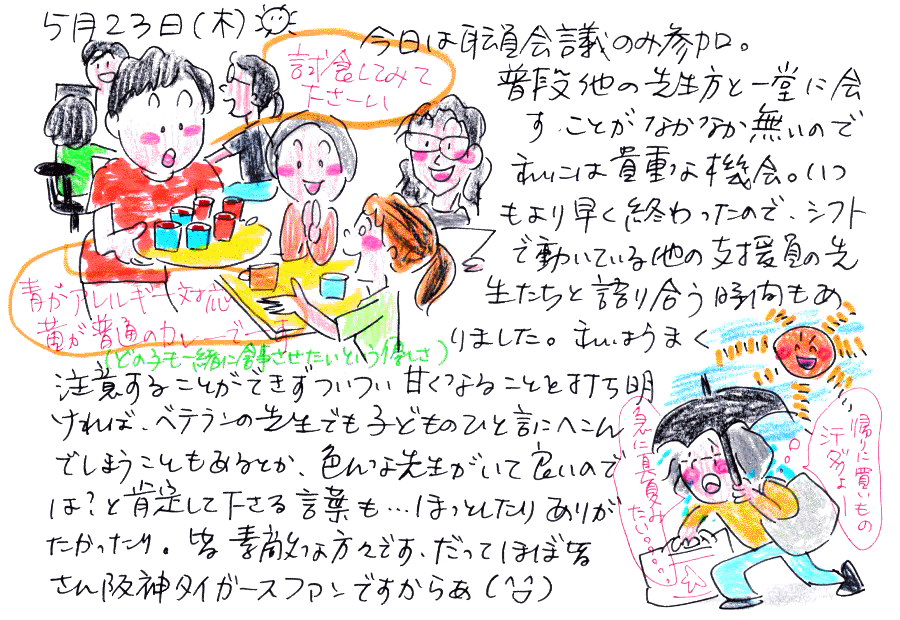 5月23日(木)
今日は職員会議のみ参加。
普段他の先生方と一堂に会
すことがなかなか無いので
わたしには貴重な機会。いつ
もより早く終わったので、シフト
で動いている他の支援員の先
生たちと語り合う時間もあ
りました。わたしはうまく
注意することができずついつい甘くなることを打ち明
ければ、ベテランの先生でも子どものひと言にへこん
でしまうこともあるとか、色んな先生がいて良いので
は?と肯定して下さる言葉も…ほっとしたりありが
たかったり。皆素敵な方々です、だってほぼ皆
さん阪神タイガースファンですからあ(^^)
試食してみて
下さーい
青がアレルギー対応
黄が普通のカレーでーす
(どの子も一緒に食事させたいという優しさ)
帰りに買いもの
汗ダクよー
急に真夏み
たい…